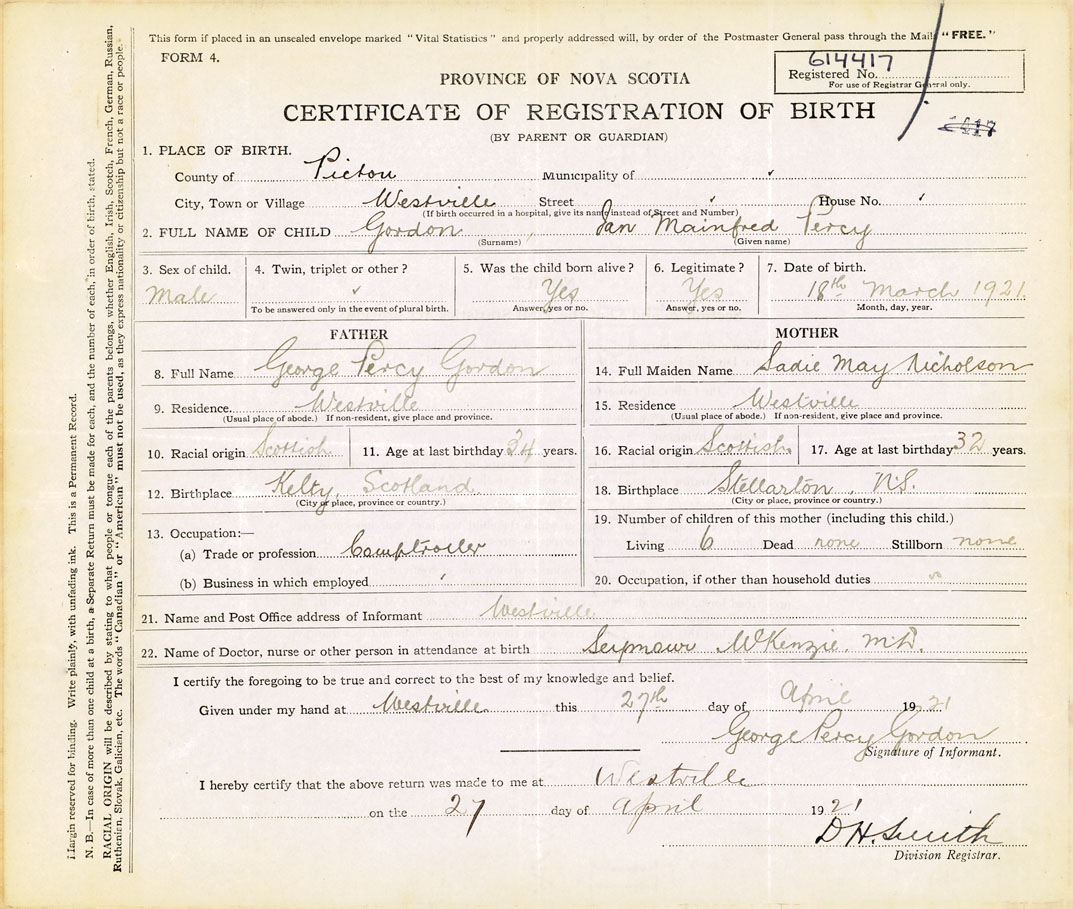 This form if placed in an unsealed envelope marked "Vital Statistics" and properly addressed will, by order of the Postmaster General pass through the Mail "FREE."
FORM 4.
614417
Registered No.
For use of Registrar General only.
PROVINCE OF NOVA SCOTIA
CERTIFICATE OF REGISTRATION OF BIRTH
(BY PARENT OR GUARDIAN)
1. PLACE OF BIRTH.
County of Pictou Municipality of
City, Town or Village Westville Street House No.
(If birth occurred in a hospital, give its name instead of Street and Number)
2. FULL NAME OF CHILD Gordon Ian Mainfred Percy
(Surname) (Given name)
3. Sex of child. 4. Twin, triplet or other? 5. Was the child born alive? 6. Legitimate? 7. Date of birth.
Male Yes Yes 18th March 1921.
To be answered only in the event of plural birth. Answer, yes or no. Answer, yes or no. Month, day, year.
FATHER
8. Full Name George Percy Gordon
9. Residence. Westville
(Usual place of abode.) If non-resident, give place and province.
10. Racial origin Scottish 11. Age at last birthday 34 years.
12. Birthplace Kelty, Scotland.
(City or place, province or country.)
13. Occupation:—
(a) Trade or profession Comptroller
(b) Business in which employed
MOTHER
14. Full Maiden Name Sadie May Nicholson
15. Residence Westville
(Usual place of abode.) If non-resident, give place and province.
16. Racial origin Scottish. 17. Age at last birthday 32 years.
18. Birthplace Stellarton, N.S.
(City or place, province or country.)
19. Number of children of this mother (including this child.)
Living 6 Dead none Stillborn none
20. Occupation, if other than household duties
21. Name and Post Office address of Informant Westville
22. Name of Doctor, nurse or other person in attendance at birth Seymour McKenzie. M.D.
I certify the foregoing to be true and correct to the best of my knowledge and belief.
Given under my hand at Westville this 27th day of April 19 21
George Percy Gordon
Signature of Informant.
I hereby certify that the above return was made to me at Westville
on the 27 day of April 19 21
D H. Smith
Division Registrar.
Margin reserved for binding. Write plainly, with unfading ink. This is a Permanent Record.
N. B.—In case of more than one child at a birth, a Separate Return must be made for each, and the number of each, in order of birth, stated.
RACIAL ORIGIN will be described by stating to what people or tongue each of the parents belongs, whether English, Irish, Scotch, French, German, Russian,
Ruthenian, Slovak, Galician, etc. The words "Canadian" or "American" must not be used, as they express nationality or citizenship but not a race or people.